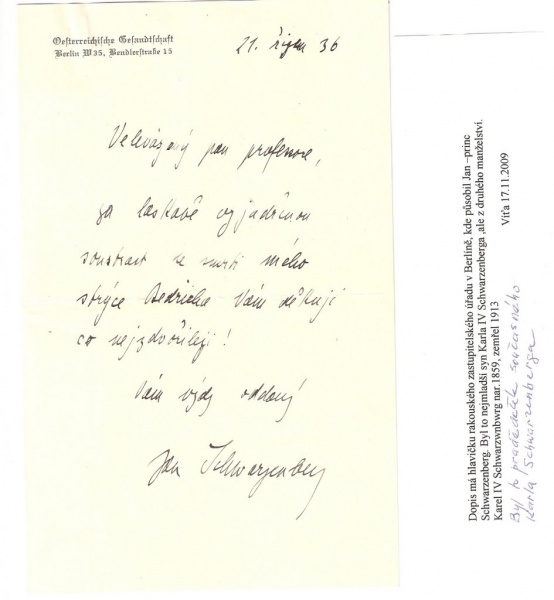 Oesterreichische Gesandtschaft
Berlin W 35, Bendlerstraße 15
21. říjen 36
Velevážený pan profesore,
za laskavě vyjádřenou
soustrast se smrti mého
strýce Bedřicha Vám děkuji
co nejzdvořileji!
Vám vždy oddaný
Jan Schwarzenberg
Dopis má hlavičku rakouského zastupitelského úřadu v Berlině, kde působil Jan –princ
Schwarzenberg. Byl to nejmladší syn Karla IV Schwarzenberga ,ale z druhého manželství.
Karel IV Schwarzwnbwrg nar.1859, zemřel 1913
Víťa 17.11.2009
Byl to pradědeček současného
Karla Schwarzenberga